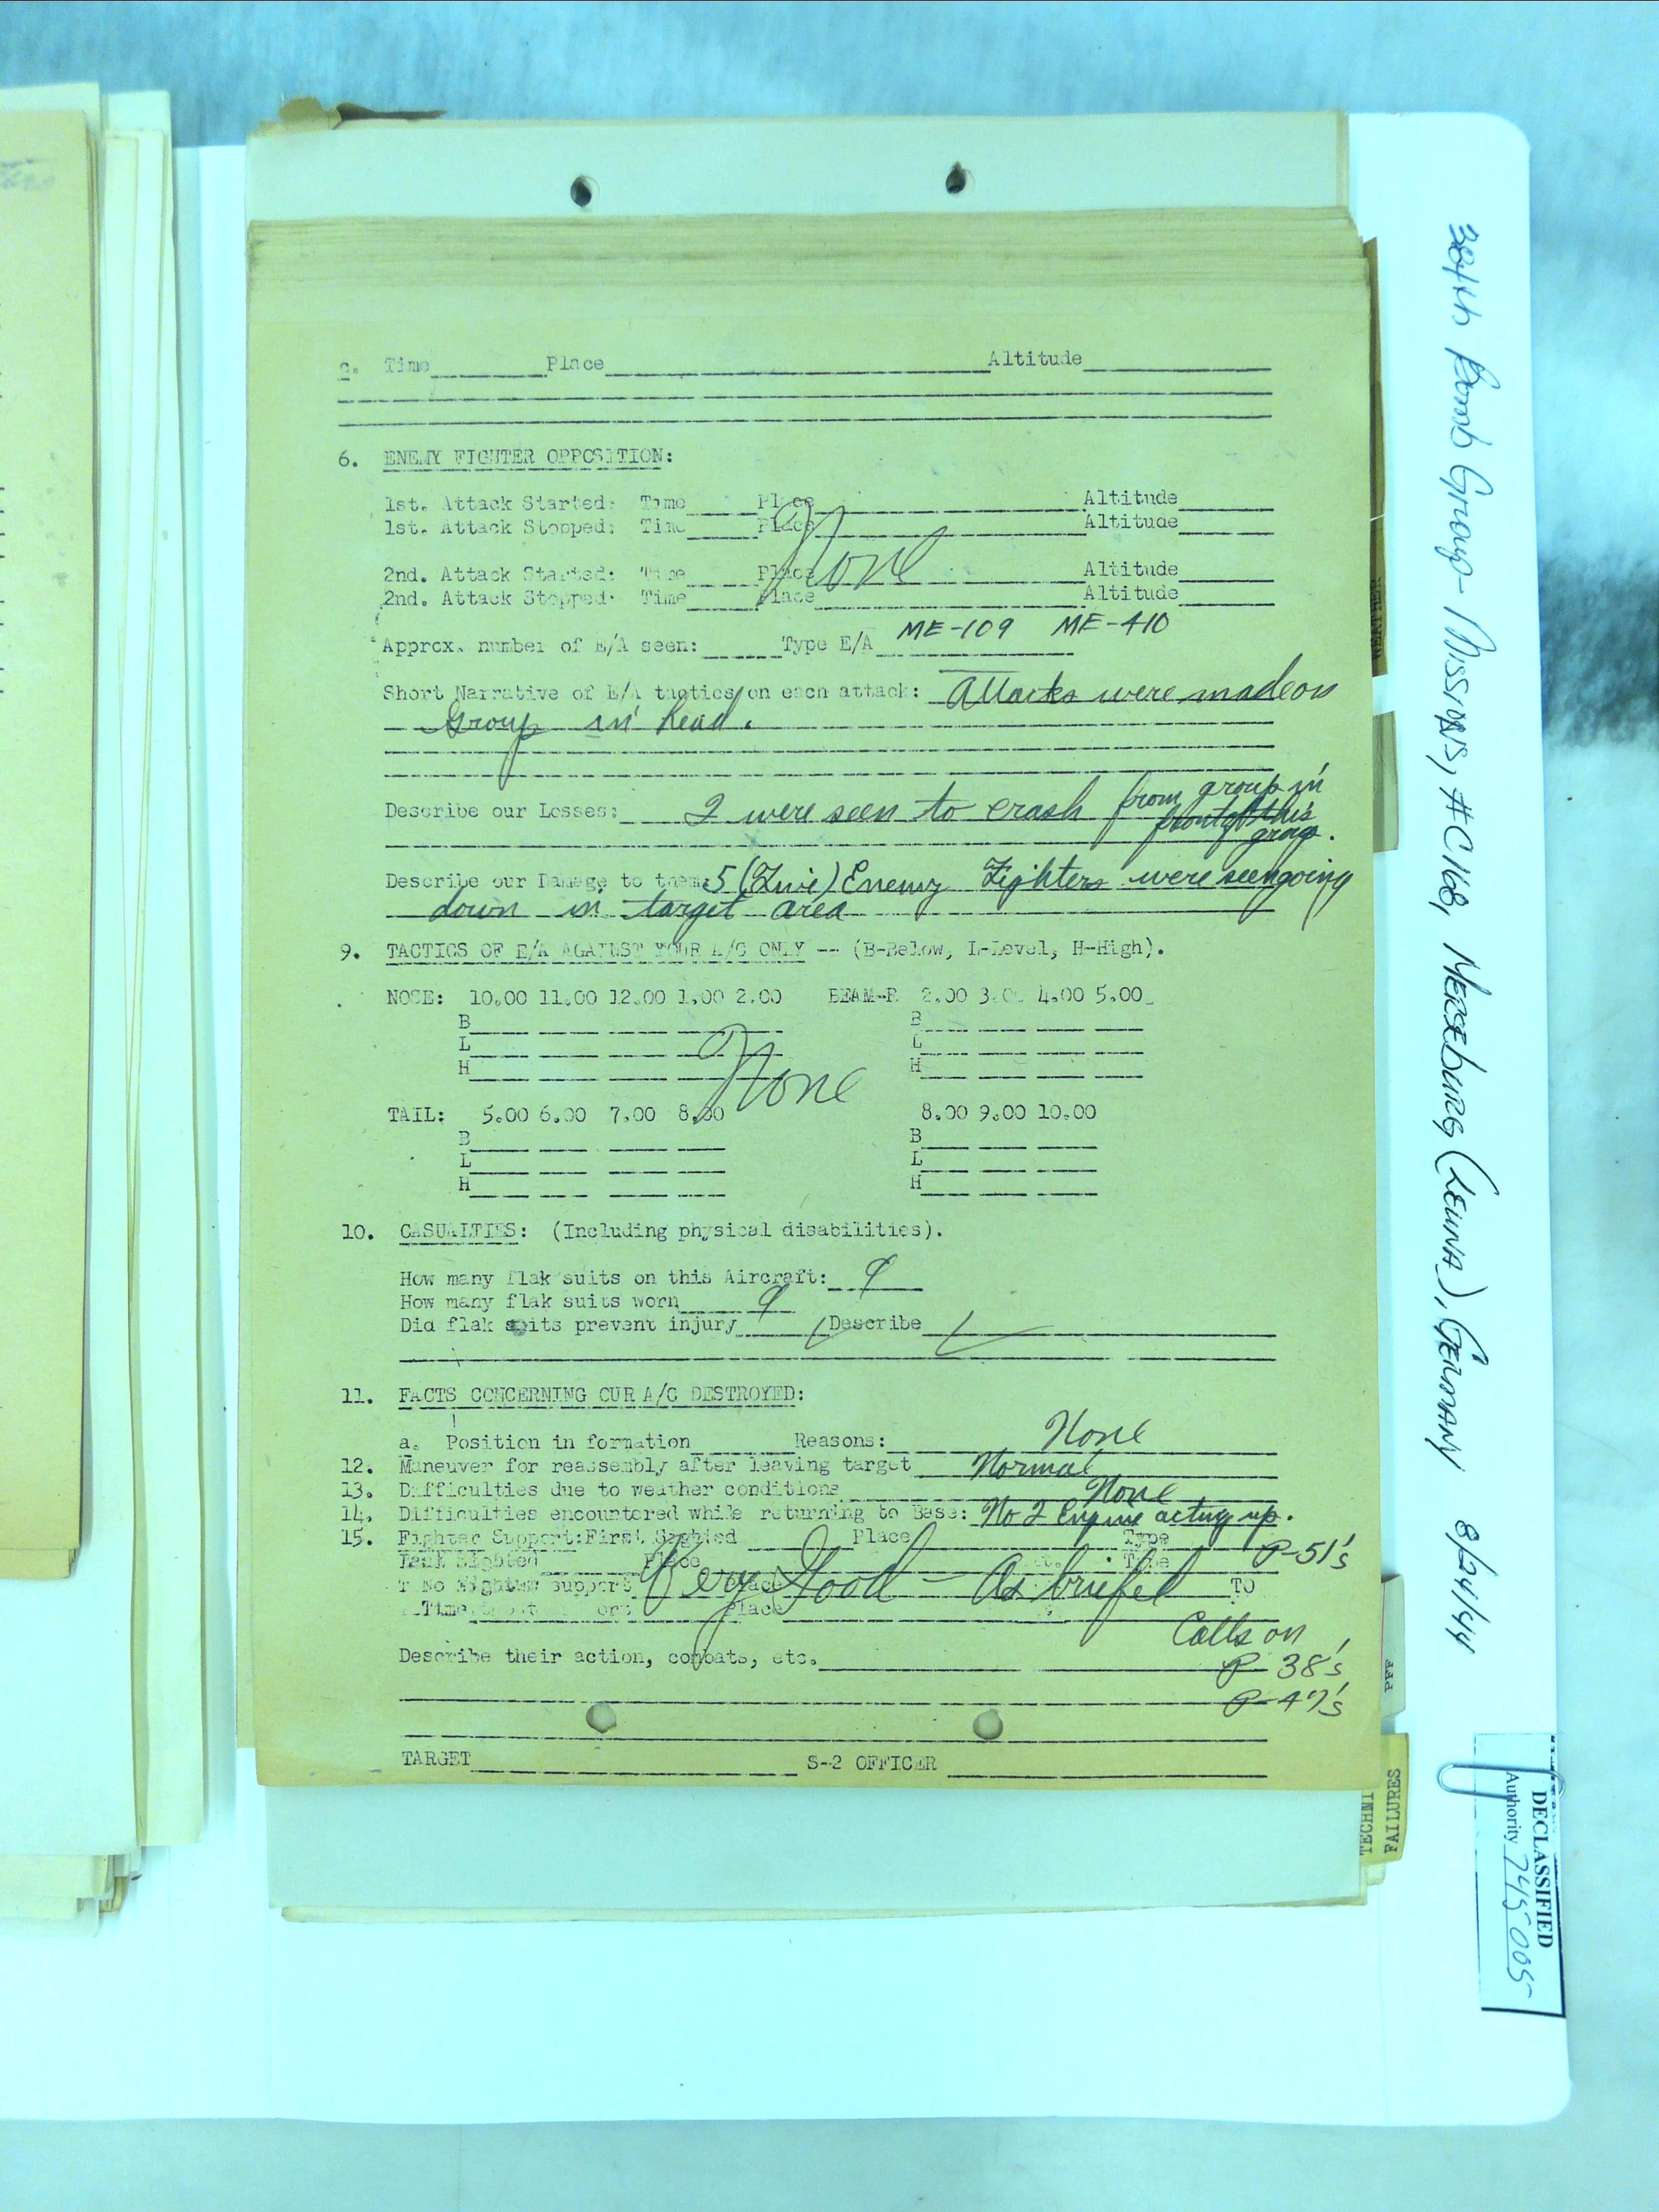 c. Time Place Altitude
6. ENEMY FIGHTER OPPOSITION:
1st. Attack Started: Time Place Altitude
1st. Attack Stopped: Time Place Altitude
None
2nd. Attack Started: Time Place Altitude
2nd. Attack Stopped: Time Place Altitude
Approx. number of E/A seen: Type E/A ME-109 ME-410
Short Narrative of E/A tactics on each attack: Attacks were made on
Group in lead.
Describe our Losses: 2 were seen to crash from group in
front of this
group.
Describe our Damage to them: 5 (Five) Enemy Fighters were seen going
down in target area
9. TACTICS OF E/A AGAINST YOUR A/C ONLY -- (B-Below, L-Level, H-High).
NOSE: 10.00 11.00 12.00 1.00 2.00 BEAM-R 2.00 3.00 4.00 5.00
B B
L L
H H
None
TAIL: 5.00 6.00 7.00 8.00 8.00 9.00 10.00
B B
L L
H H
10. CASUALTIES: (Including physical disabilities).
How many flak suits on this Aircraft: 9
How many flak suits worn 9
Did flak suits prevent injury Describe
11. FACTS CONCERNING OUR A/C DESTROYED:
a. Position in formation Reasons: None
12. Maneuver for reassembly after leaving target Normal
13. Difficulties due to weather conditions None
14. Difficulties encountered while returning to Base: No 2 Engine acting up.
15. Fighter Support: First Sighted Place Type P-51's
Sighted Place Type
No Fighter support Place TO
Very Good - As briefed
Time Place
Calls on
Describe their action, combats, etc. P-38's
P-47's
TARGET S-2 OFFICER
384th Bomb Group - Mission, #C168, Merseburg (Leuna), Germany 8/24/44
WEATHER
PFF
TECHNI
FAILURES
DECLASSIFIED
Authority 745005